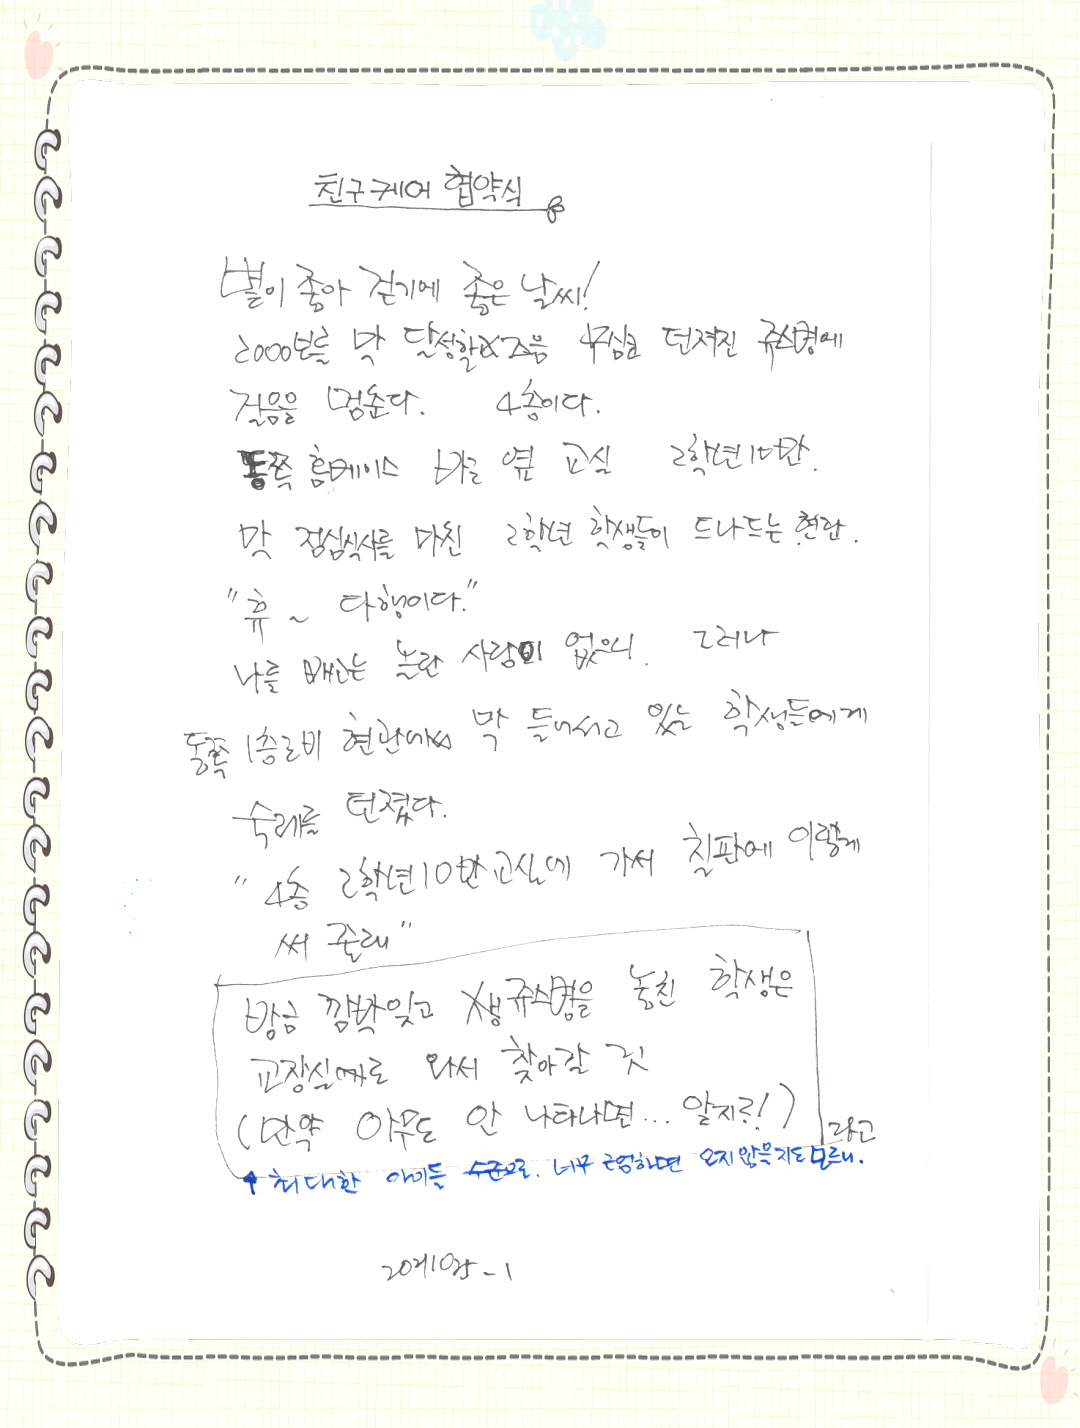 친구케어 협약식
볕이 좋아 걷기에 좋은 날씨!
2000보를 막 달성할 즈음 무심코 던져진 쥬스병에
걸음을 멈춘다. 4층이다.
동쪽 홈베이스 바로 옆 교실 2학년10반.
막 점심식사를 마친 2학년 학생들이 드나드는 현관.
"휴~ 다행이다."
나를 놀란 사람이 없으니. 그러나
동쪽 1층로비 현관에서 막 들어서고 있는 학생들에게
숙제를 던졌다.
"4층 2학년10반교실에 가서 칠판에 이렇게
써 줄래"
방금 깜박잊고 쥬스병을 놓친 학생은
교장실로 와서 찾아갈 것
(만약 아무도 안 나타나면... 알지?!)
라고
↑ 최대한 아이들 수준으로. 너무 근엄하면 오지않을지도 모르니.
20211025-1